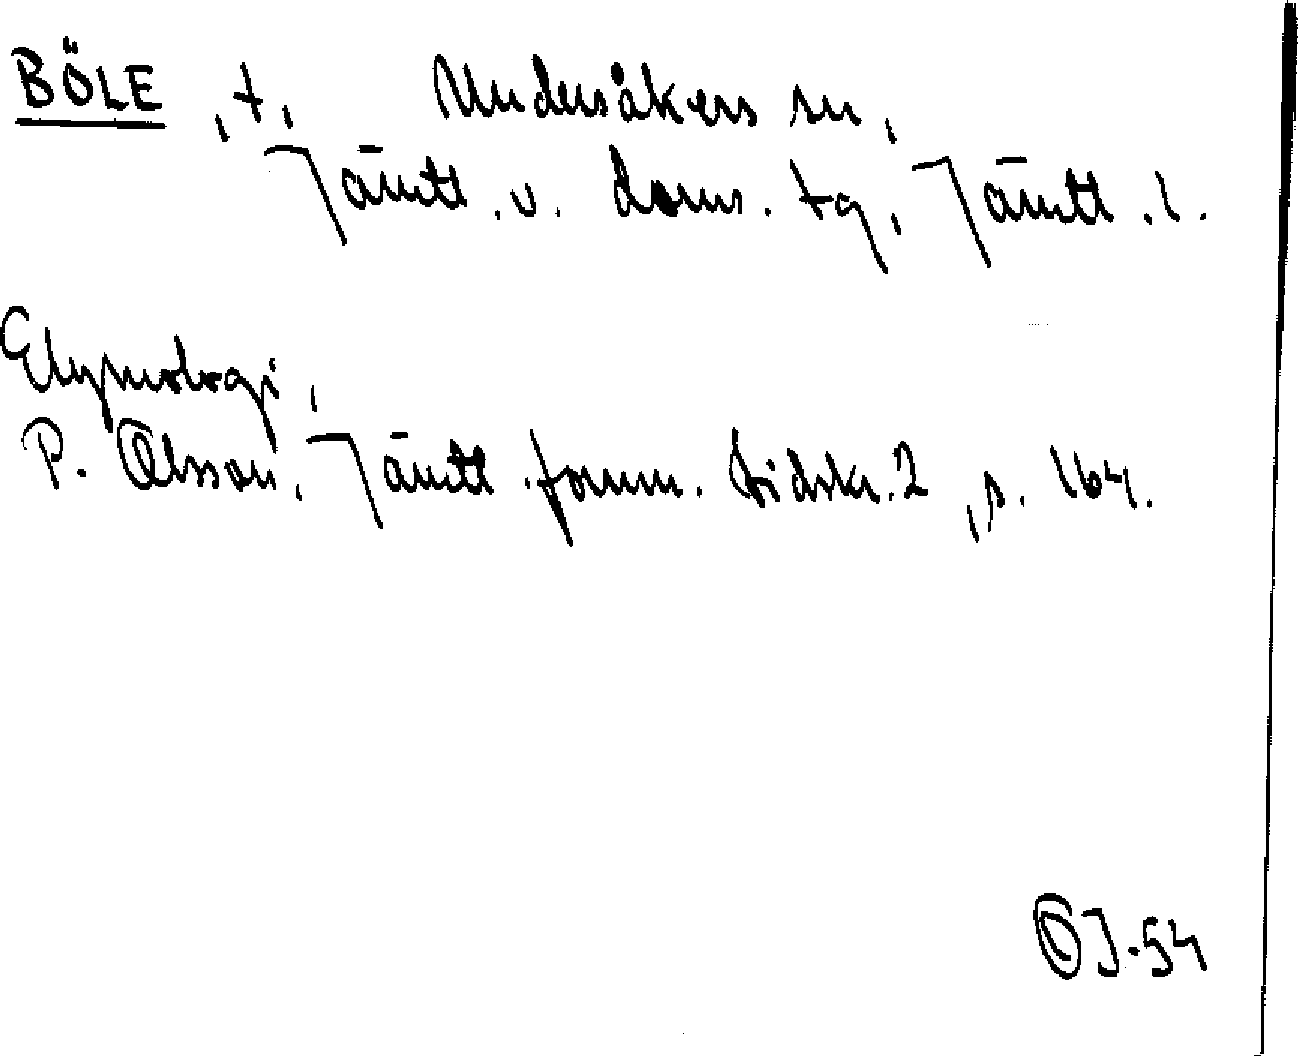 BÖLE, t, Undersåkers sn,
Jämtl. v. doms. tg, Jämtl. l.
Etymologi,
P. Olsson, Jämtl. fornm. tidskr. 2, s. 164.
OJ-54